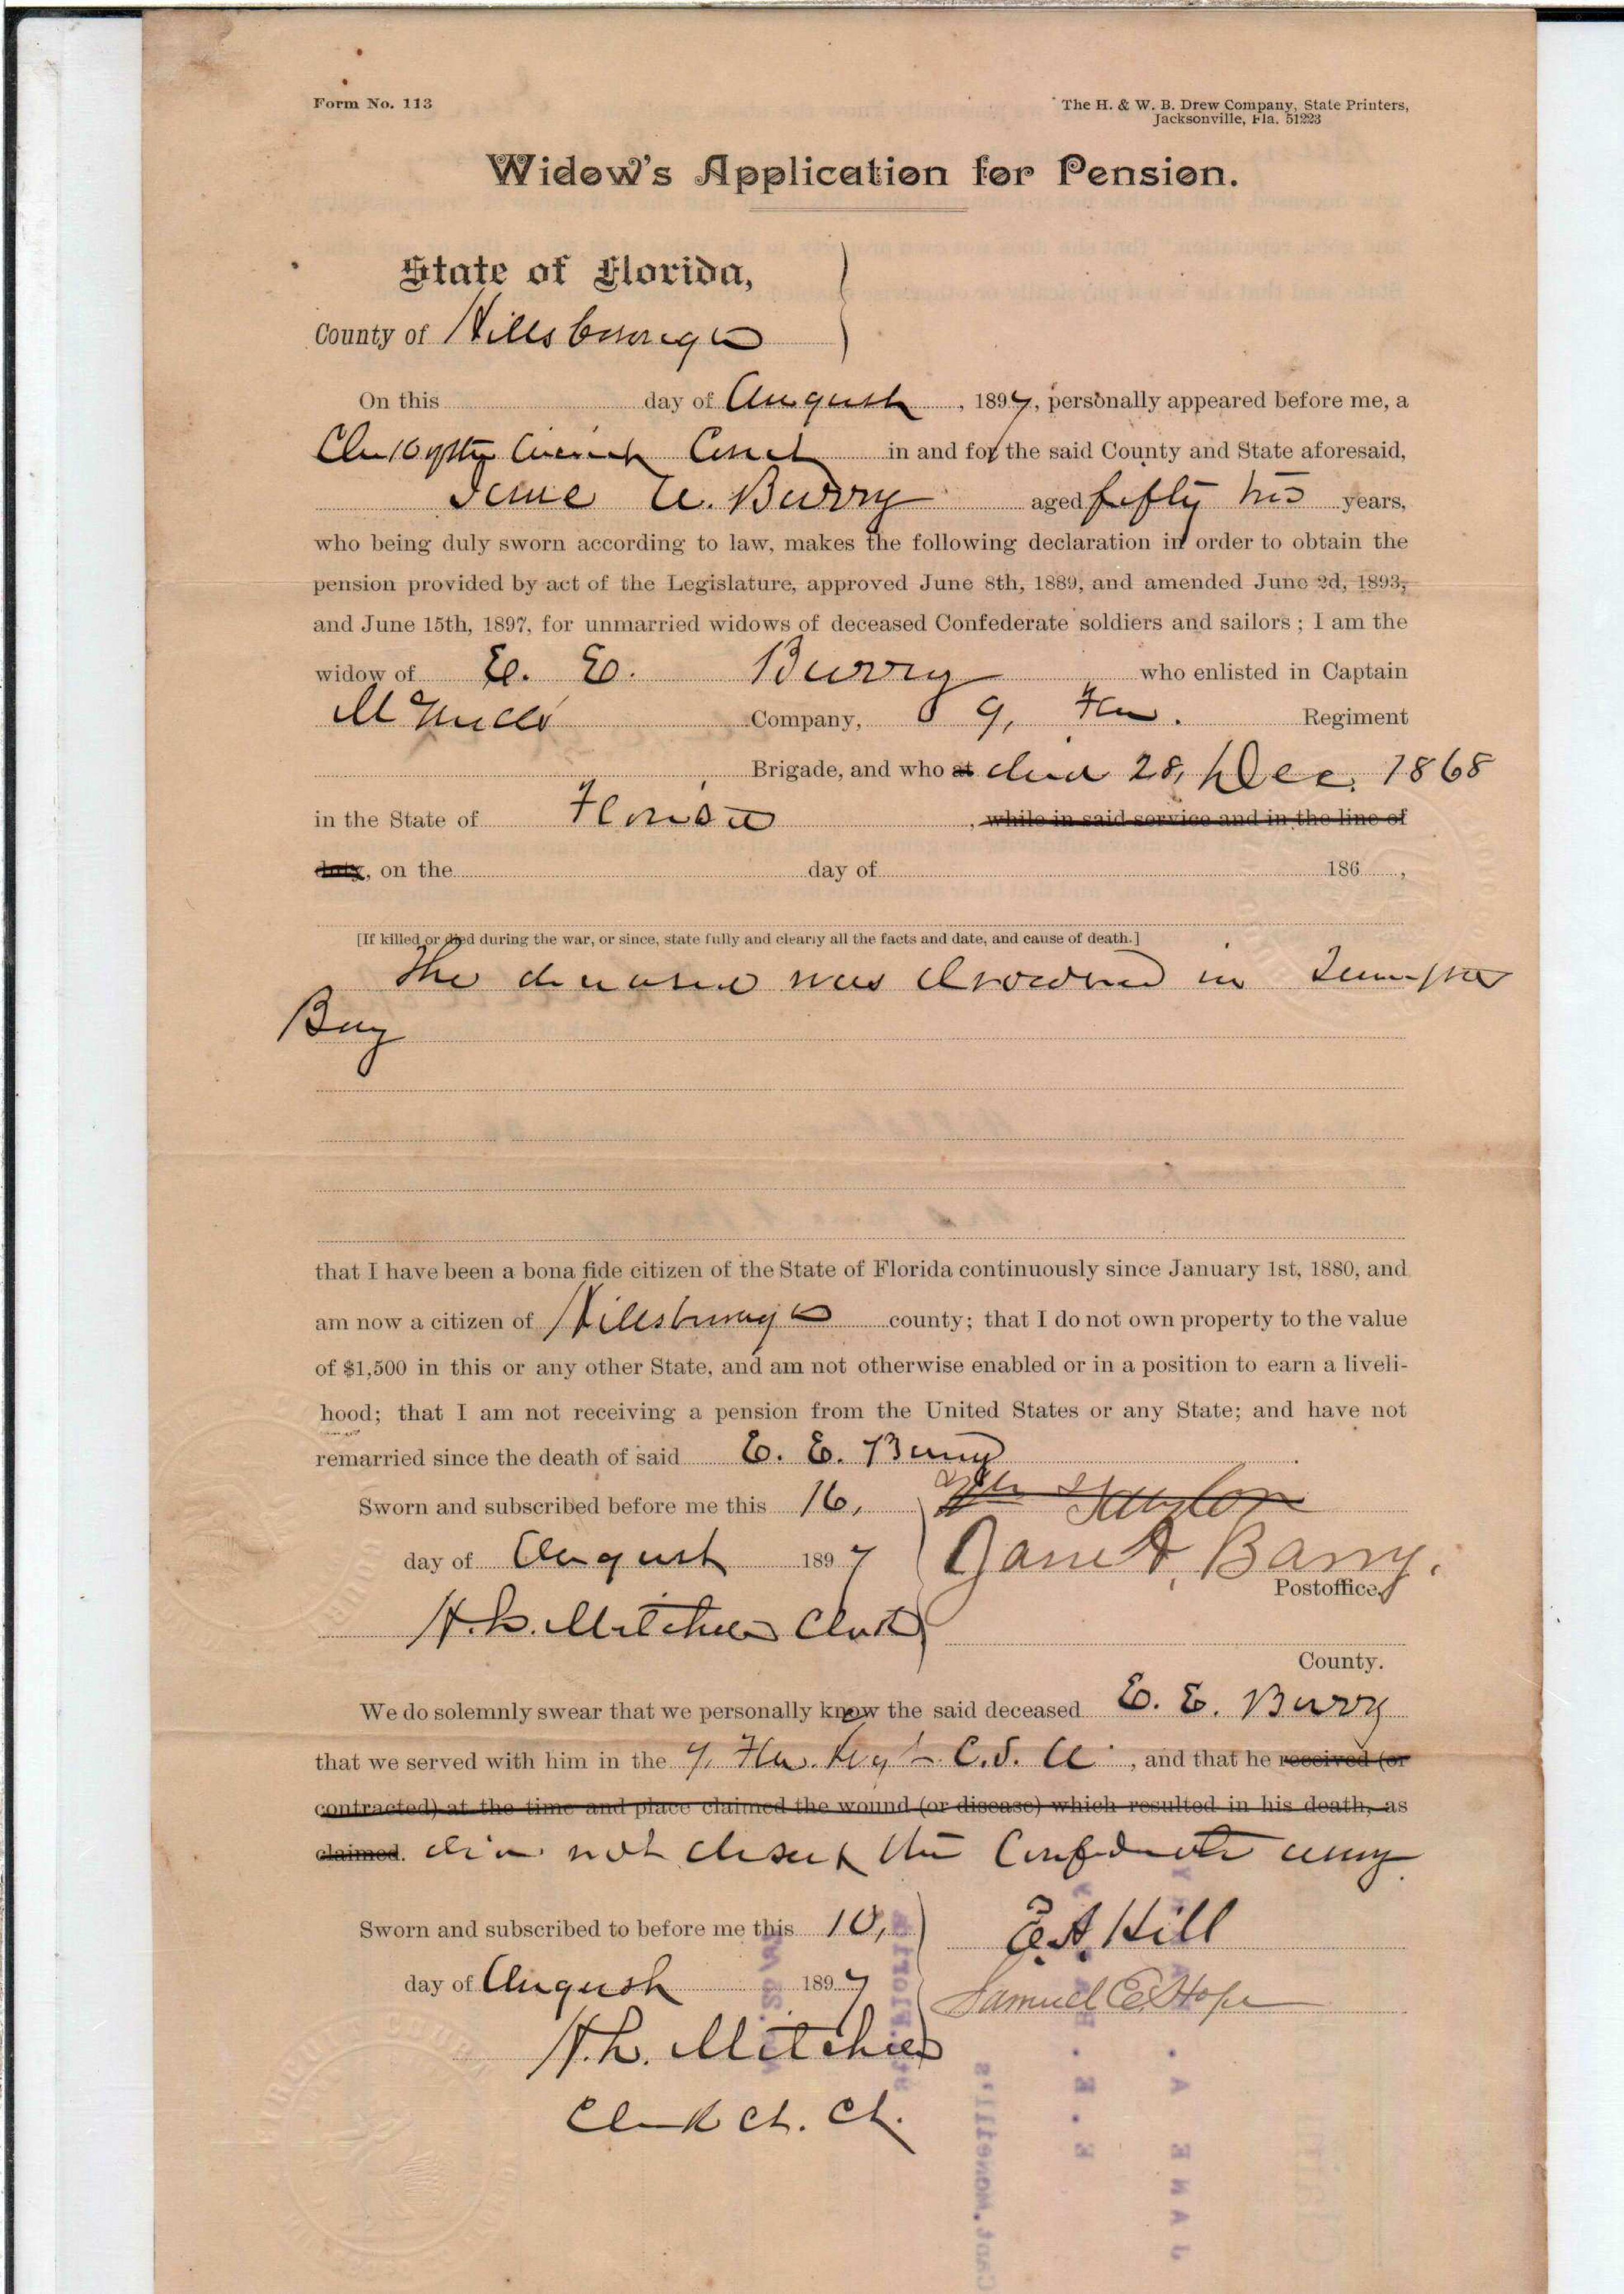 Form No. 113
The H. & W. B. Drew Company, State Printers,
Jacksonville, Fla. 51223
Widow's Application for Pension.
State of Florida,
County of Hillsborough
On this day of August, 1897, personally appeared before me, a
Clerk of the Circuit Court in and for the said County and State aforesaid,
Jane A. Barry aged fifty two years,
who being duly sworn according to law, makes the following declaration in order to obtain the
pension provided by act of the Legislature, approved June 8th, 1889, and amended June 2d, 1893,
and June 15th, 1897, for unmarried widows of deceased Confederate soldiers and sailors; I am the
widow of E. E. Barry who enlisted in Captain
Company, Fla. Regiment
Brigade, and who at died 28, Dec. 1868
in the State of Florida, while in said service and in the line of
duty, on the day of 186 ,
[If killed or died during the war, or since, state fully and clearly all the facts and date, and cause of death.]
The deceased was drowned in Tampa
Bay
that I have been a bona fide citizen of the State of Florida continuously since January 1st, 1880, and
am now a citizen of Hillsborough county; that I do not own property to the value
of $1,500 in this or any other State, and am not otherwise enabled or in a position to earn a liveli-
hood; that I am not receiving a pension from the United States or any State; and have not
remarried since the death of said E. E. Barry
Sworn and subscribed before me this 16,
day of August 1897
Jane A. Barry.
Postoffice,
H. L. Mitchell Clerk
County.
We do solemnly swear that we personally know the said deceased E. E. Barry
that we served with him in the Fla. Regt C. S. A., and that he received (or
contracted) at the time and place claimed the wound (or disease) which resulted in his death, as
claimed. did not desert the Confederate army.
Sworn and subscribed to before me this 10,
E. A. Hill
day of August 1897
Samuel E. Hope
H. L. Mitchell
Clerk Ct. Ct.